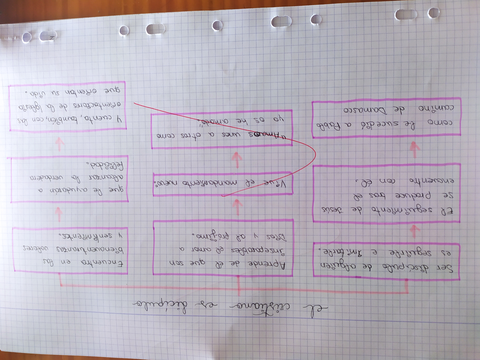 el cristiano es dicipulo
Ser discípulo de alguien
es seguirle e imitarle.
El seguimiento de Jesús
se produce tras el
encuentro con él.
como le sucedió a Pablo
camino de Damasco
Aprende de él que son
inseparables el amor a
Dios y al prójimo.
Vive el mandamiento nuevo:
"Amaos unos a otros como
yo os he amado".
Encuentra en las
bienaventuranzas
y sentimientos.
que le ayudan a
alcanzar la verdadera
felicidad.
Y cuenta, también, con las
orientaciones de la iglesia
que orientan su vida.